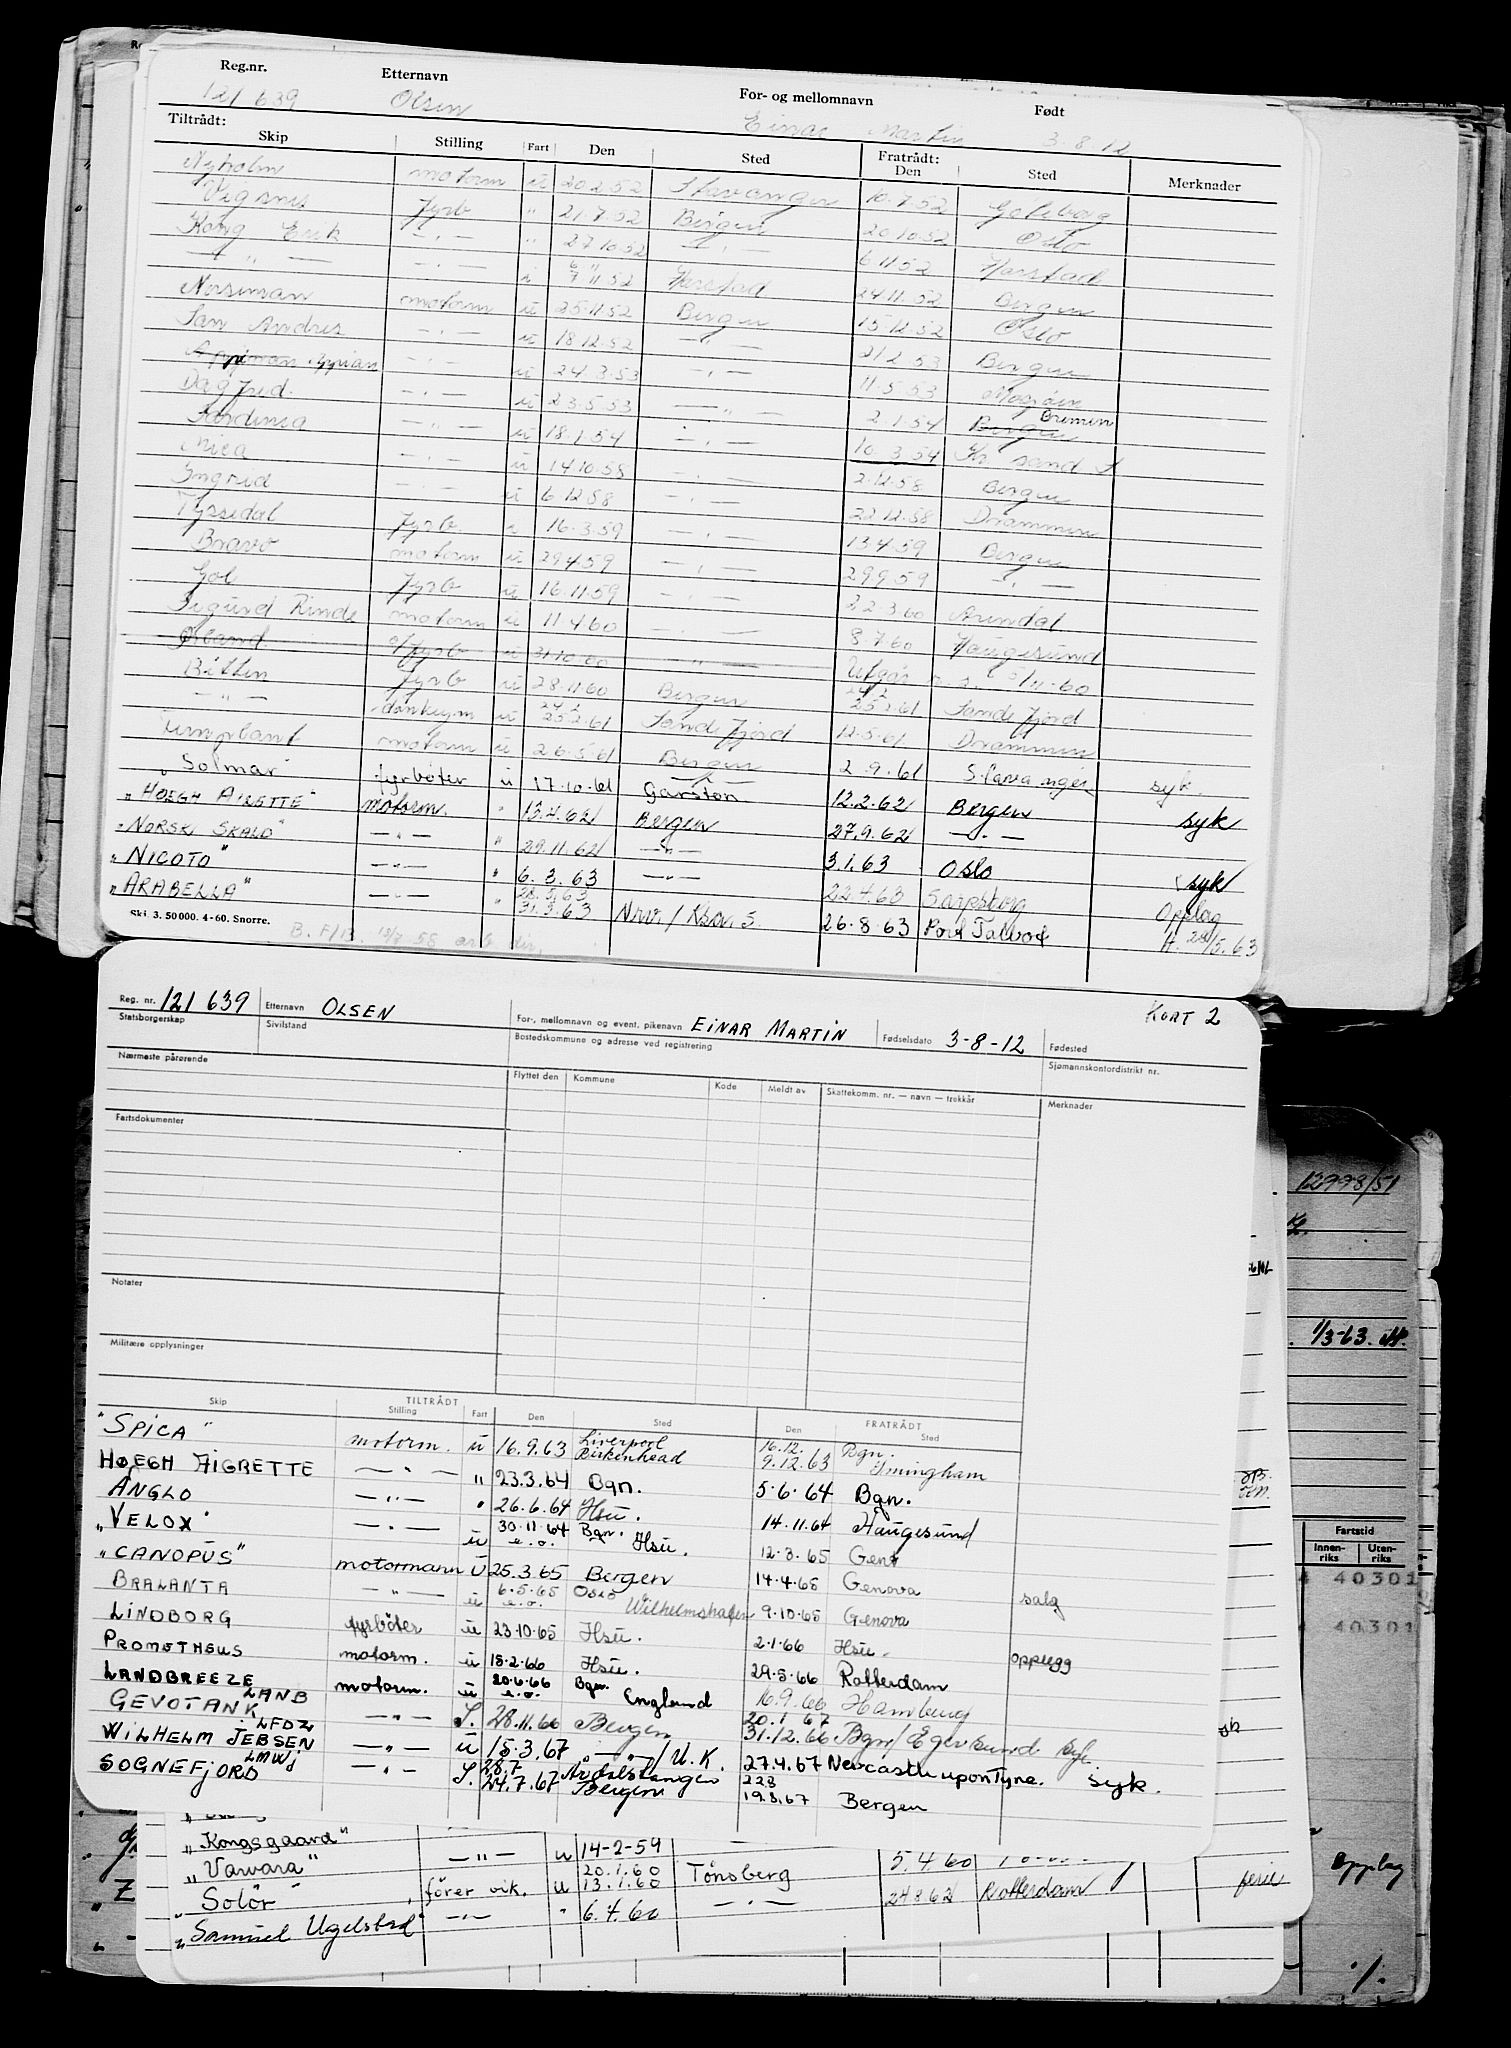 Reg.nr. Etternavn For- og mellomnavn Født
121 639 Olsen Einar Martin 3.8.12
Tiltrådt: Fratrådt:
Skip Stilling Fart Den Sted Den Sted Merknader
Nyholm motorm u 20.2.52 Stavanger 10.7.52 Göteborg
Vigsnes fyrb " 21.7.52 Bergen 20.10.52 Oslo
Kong Erik - " - " 27.10.52 - " - 6.11.52 Harstad
- " - - " - i 6/7 11.52 Harstad 24.11.52 Bergen
Norseman motorm u 25.11.52 Bergen 15.12.52 Oslo
San Andres - " - u 18.12.52 - " - 21.2.53 Bergen
Appian - " - u 24.3.53 - " - 11.5.53 Mosjøen
Dagfred. - " - u 23.5.53 - " - 2.1.54 Bergen Bremen
Sardinia - " - u 18.1.54 - " - 10.3.54 Kr sand S
Nica - " - u 14.10.58 - " - 2.12.58 Bergen
Ingrid - " - u 6.12.58 - " - 22.12.58 Drammen
Tyssedal fyrb. u 16.3.59 - " - 13.4.59 Bergen
Bravo motorm u 29.4.59 - " - 29.9.59 - " -
Gol fyrb u 16.11.59 - " - 22.3.60 Arendal
Sigurd Rinde motorm u 11.4.60 - " - 8.7.60 Haugesund
fyrb u 31.10.60 - " - Utgår 60
Bitten fyrb u 28.11.60 Bergen 24.2 25.2.61 Sandefjord
- " - donkeym u 24.2 25.2.61 Sandefjord 12.5.61 Drammen
motorm u 26.5.61 Bergen 2.9.61 Stavanger syk.
Solmar fyrbøter u 17.10.61 Garston 12.2.62 Bergen syk
"HØEGH AIRETTE" motorm. " 13.4.62 Bergen 27.9.62 - " -
"NORSK SKALD" - " - " 29.11.62 - " - 3.1.63 Oslo syk
"NICOTO" - " - " 6.3.63 - " - 22.4.63 Sarpsborg Opplag
"ARABELLA" - " - " 28.5.63 31.3.63 Nrv./ 26.8.63 Port Talbot H. 28/5.63
Ski. 3. 50 000. 4-60. Snorre.
B. F/13. 13/8 58 arb. dir.
Reg. nr. 121 639 Etternavn OLSEN For-, mellomnavn og event. pikenavn EINAR MARTIN Fødselsdato 3-8-12 Fødested KORT 2
Statsborgerskap Sivilstand Bostedskommune og adresse ved registrering Sjømannskontordistrikt nr.
Nærmeste pårørende Flyttet den Kommune Kode Meldt av Skattekomm. nr. — navn — trekkår Merknader
Fartsdokumenter
Notater
Militære opplysninger
TILTRÅDT FRATRÅDT
Skip Stilling Fart Den Sted Den Sted
"SPICA" motorm. u 16.9.63 Liverpool Birkenhead 16.12. 9.12.63 Bgn. Imingham
HØEGH AIGRETTE - " - " 23.3.64 Bgn. 5.6.64 Bgn.
ANGLO - " - " 26.6.64 Hsu. 14.11.64 Haugesund
"VELOX" - " - u 30.11.64 e.o. Bgn. Hsu. 12.3.65 Gent
"CANOPUS" motormann u 25.3.65 Bergen 14.4.65 Genova salg
BRALANTA - " - u 6.5.65 e.o. Oslo Wilhelmshafen 9.10.65 Genova
LINDBORG fyrbøter u 23.10.65 Hsu. 2.1.66 Hsu. opplegg
PROMETHEUS motorm. u 15.2.66 Hsu. 29.5.66 Rotterdam
LANDBREEZE motorm. u 20.6.66 e.o. Bgn. England 16.9.66 Hamburg
GEVOTANK LANB - " - S. 28.11.66 Bergen 20.1.67 31.12.66 Bgn/Egersund syk.
WILHELM JEBSEN LFDZ - " - u 15.3.67 - " - / U.K. 27.4.67 Newcastle upon Tyne. syk.
SOGNEFJORD LMWJ - " - S. 28.7 24.7.67 Årdalstangen Bergen 22.8 19.8.67 Bergen
"Kongsgaard" - " - u 14-2-59
"Varvara" 20.1.60 Tønsberg 5.4.60
"Solør" fører vik. u 13.1.60 - " - 24.8.62 Rotterdam ferie
"Samuel Ugelstad" - " - " 6.4.60
12998/51
1/3-63. H.
Fartstid
Innenriks Utenriks
40301
40301
Opplag